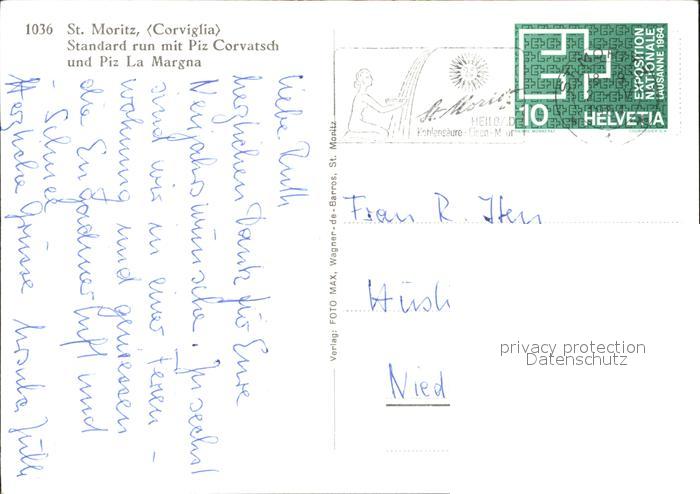 1036 St. Moritz, (Corviglia)
Standard run mit Piz Corvatsch
und Piz La Margna
St. Moritz
HEILBAD
Kohlensäure-Eisen-Moor
10
EXPOSITION
NATIONALE
LAUSANNE 1964
HELVETIA
Liebe Ruth
herzlichen Dank für Eure
Neujahrswünsche. Zu sechst
sind wir in einer Ferien-
wohnung und geniessen
die Engadiner Luft und
Schnee
Herzliche Grüsse Ursula
Verlag: FOTO MAX, Wagner-de-Barros, St. Moritz
Frau R. Iten
Hüsli
Nied
privacy protection
Datenschutz